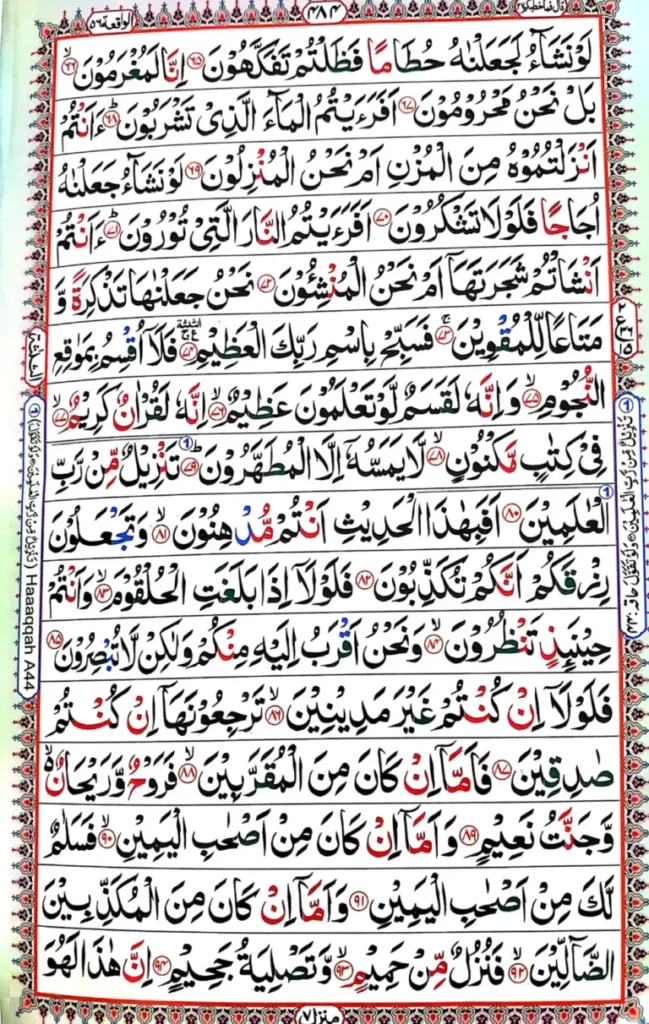 قال فما خطبكم ٢٧
٣٨٣
الواقعة ٥٦
لَوْ نَشَآءُ لَجَعَلْنٰهُ حُطَامًا فَظَلْتُمْ تَفَكَّهُوْنَ ﴿٦٥﴾ اِنَّا لَمُغْرَمُوْنَ ﴿٦٦﴾
بَلْ نَحْنُ مَحْرُوْمُوْنَ ﴿٦٧﴾ اَفَرَءَيْتُمُ الْمَآءَ الَّذِيْ تَشْرَبُوْنَ ﴿٦٨﴾ ءَاَنْتُمْ
اَنْزَلْتُمُوْهُ مِنَ الْمُزْنِ اَمْ نَحْنُ الْمُنْزِلُوْنَ ﴿٦٩﴾ لَوْ نَشَآءُ جَعَلْنٰهُ
اُجَاجًا فَلَوْلَا تَشْكُرُوْنَ ﴿٧٠﴾ اَفَرَءَيْتُمُ النَّارَ الَّتِيْ تُوْرُوْنَ ﴿٧١﴾ ءَاَنْتُمْ
اَنْشَاْتُمْ شَجَرَتَهَآ اَمْ نَحْنُ الْمُنْشِئُوْنَ ﴿٧٢﴾ نَحْنُ جَعَلْنٰهَا تَذْكِرَةً وَّ
مَتَاعًا لِّلْمُقْوِيْنَ ﴿٧٣﴾ فَسَبِّحْ بِاسْمِ رَبِّكَ الْعَظِيْمِ ﴿٧٤﴾ فَلَآ اُقْسِمُ بِمَوٰقِعِ
النُّجُوْمِ ﴿٧٥﴾ وَاِنَّهٗ لَقَسَمٌ لَّوْ تَعْلَمُوْنَ عَظِيْمٌ ﴿٧٦﴾ اِنَّهٗ لَقُرْاٰنٌ كَرِيْمٌ ﴿٧٧﴾
فِيْ كِتٰبٍ مَّكْنُوْنٍ ﴿٧٨﴾ لَّا يَمَسُّهٗٓ اِلَّا الْمُطَهَّرُوْنَ ﴿٧٩﴾ تَنْزِيْلٌ مِّنْ رَّبِّ
الْعٰلَمِيْنَ ﴿٨٠﴾ اَفَبِهٰذَا الْحَدِيْثِ اَنْتُمْ مُّدْهِنُوْنَ ﴿٨١﴾ وَتَجْعَلُوْنَ
رِزْقَكُمْ اَنَّكُمْ تُكَذِّبُوْنَ ﴿٨٢﴾ فَلَوْلَآ اِذَا بَلَغَتِ الْحُلْقُوْمَ ﴿٨٣﴾ وَاَنْتُمْ
حِيْنَئِذٍ تَنْظُرُوْنَ ﴿٨٤﴾ وَنَحْنُ اَقْرَبُ اِلَيْهِ مِنْكُمْ وَلٰكِنْ لَّا تُبْصِرُوْنَ ﴿٨٥﴾
فَلَوْلَآ اِنْ كُنْتُمْ غَيْرَ مَدِيْنِيْنَ ﴿٨٦﴾ تَرْجِعُوْنَهَآ اِنْ كُنْتُمْ
صٰدِقِيْنَ ﴿٨٧﴾ فَاَمَّآ اِنْ كَانَ مِنَ الْمُقَرَّبِيْنَ ﴿٨٨﴾ فَرَوْحٌ وَّرَيْحَانٌ
وَّجَنَّتُ نَعِيْمٍ ﴿٨٩﴾ وَاَمَّآ اِنْ كَانَ مِنْ اَصْحٰبِ الْيَمِيْنِ ﴿٩٠﴾ فَسَلٰمٌ
لَّكَ مِنْ اَصْحٰبِ الْيَمِيْنِ ﴿٩١﴾ وَاَمَّآ اِنْ كَانَ مِنَ الْمُكَذِّبِيْنَ
الضَّآلِّيْنَ ﴿٩٢﴾ فَنُزُلٌ مِّنْ حَمِيْمٍ ﴿٩٣﴾ وَّتَصْلِيَةُ جَحِيْمٍ ﴿٩٤﴾ اِنَّ هٰذَا لَهُوَ
منزل ٧
Haaaqqah A44